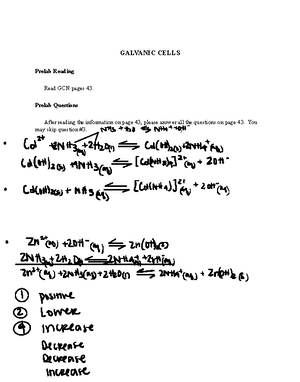 GALVANIC CELLS
Prelab Reading
Read GCN pages 43.
Prelab Questions
After reading the information on page 43, please answer all the questions on page 43. You
may skip question #3.
NH3 + H2O ⇌ NH4+ + OH-
Cd2+ + 2NH3(aq) + 2H2O(l) ⇌ Cd(OH)2(s) + 2NH4+(aq)
Cd(OH)2(s) + 4NH3(aq) ⇌ [Cd(NH3)4]2+(aq) + 2OH-
Cd(OH)2(s) + NH3(aq) ⇌ [Cd(NH3)4]2+(aq) + 2OH-(aq)
Zn2+(aq) + 2OH-(aq) ⇌ Zn(OH)2(s)
2NH3 + 2H2O ⇌ 2NH4+ + 2OH-(aq)
Zn2+(aq) + 2NH3(aq) + 2H2O(l) ⇌ 2NH4+(aq) + Zn(OH)2(s)
1 positive
2 Lower
4 increase
Decrease
Decrease
increase